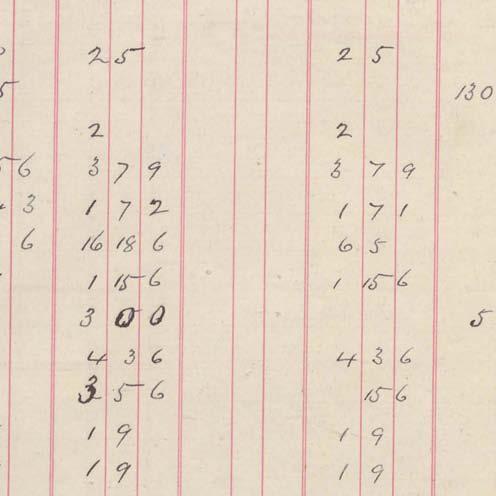 2 5 2 5
5 130
2 2
5 6 3 7 9 3 7 9
3 1 7 2 1 7 1
6 16 18 6 6 5
1 15 6 1 15 6
3 0 0 5
4 3 6 4 3 6
3 5 6 15 6
1 9 1 9
1 9 1 9